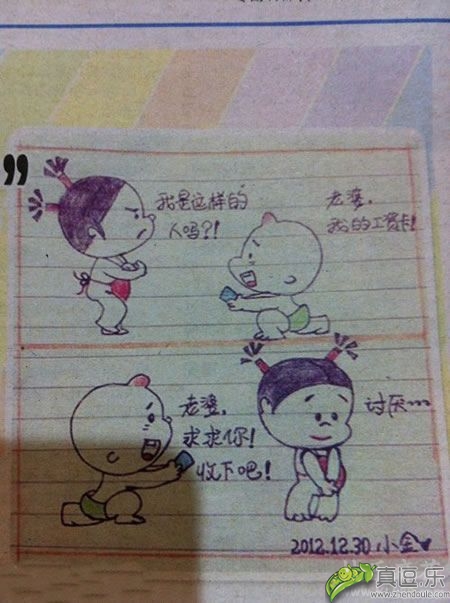 我是这样的
人吗?!
老婆,
我的工资卡!
老婆,
求求你!
收下吧!
讨厌~~~
2012.12.30 小金
真逗.乐
www.zhendoule.com